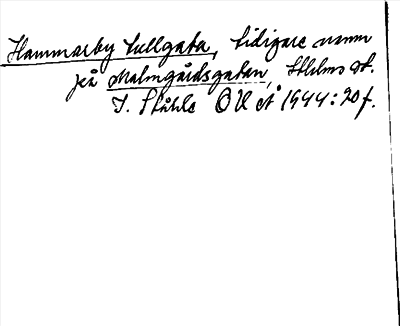 Hammarby tullgata, tidigare namn
på Malmgårdsgatan, Sthlms st.
I. Ståhle OV å 1944:20 f.